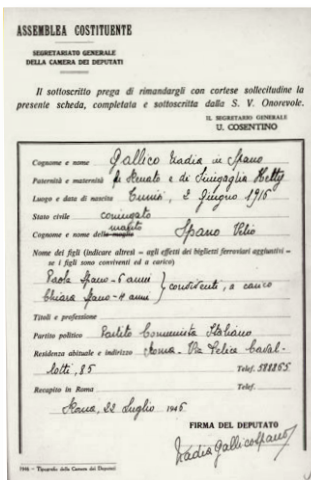 ASSEMBLEA COSTITUENTE
SEGRETARIATO GENERALE
DELLA CAMERA DEI DEPUTATI
Il sottoscritto prega di rimandargli con cortese sollecitudine la
presente scheda, completata e sottoscritta dalla S. V. Onorevole.
IL SEGRETARIO GENERALE
U. COSENTINO
Cognome e nome Gallico Nadia in Spano
Paternità e maternità fu Renato e di Sinigaglia Hetty
Luogo e data di nascita Tunisi, 2 Giugno 1916
Stato civile coniugata
Cognome e nome della moglie marito Spano Velio
Nome dei figli (indicare altresì - agli effetti dei biglietti ferroviari aggiuntivi -
se i figli sono conviventi ed a carico)
Paola Spano - 6 anni
Chiara Spano - 4 anni } conviventi, a carico
Titoli e professione
Partito politico Partito Comunista Italiano
Residenza abituale e indirizzo Roma - Via Felice Caval-
lotti, 85 Telef.
Recapito in Roma Telef.
Roma, 22 Luglio 1946
FIRMA DEL DEPUTATO
Nadia Gallico Spano
1946 - Tipografia della Camera dei Deputati